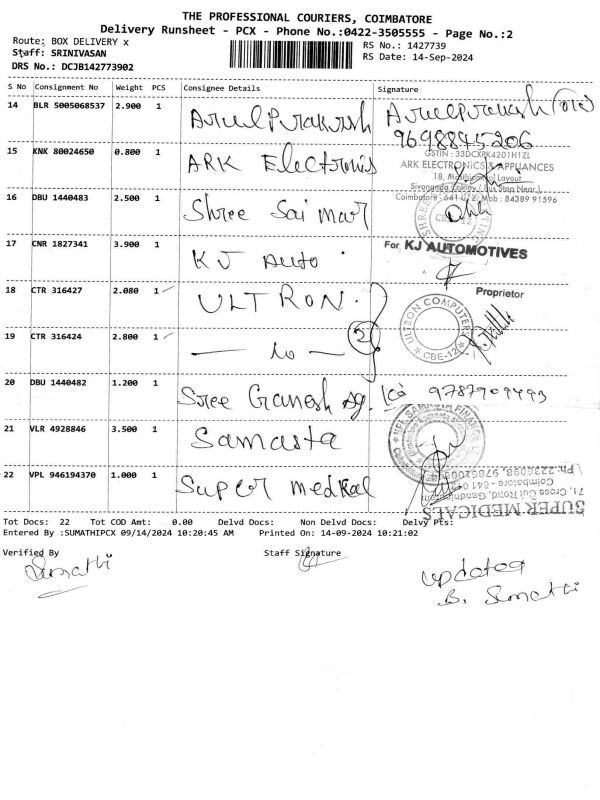 THE PROFESSIONAL COURIERS, COIMBATORE
Delivery Runsheet - PCX - Phone No.:0422-3505555 - Page No.:2
Route: BOX DELIVERY x
RS No.: 1427739
Staff: SRINIVASAN
RS Date: 14-Sep-2024
DRS No.: DCJB142773902
S No Consignment No Weight PCS Consignee Details Signature
14 BLR 5005068537 2.900 1 Arul Prakash Arulprakash
9698845206
15 KNK 80024650 0.800 1 ARK Electronics
GSTIN : 33DCXPK4201H1ZL
ARK ELECTRONICS & APPLIANCES
18, Layout
Coimbatore - 641 012. Mob : 84389 91596
16 DBU 1440483 2.500 1 Shree Sai
17 CNR 1827341 3.900 1 KJ Auto
For KJ AUTOMOTIVES
Proprietor
18 CTR 316427 2.080 1 ULTRON
ULTRON COMPUTERS
CBE-12
19 CTR 316424 2.800 1 2
20 DBU 1440482 1.200 1 Sree Ganesh Ag.
21 VLR 4928846 3.500 1 Samasta
22 VPL 946194370 1.000 1 Super Medical
SUPER MEDICALS
71, Cross Cut Road, Gandhipuram
Tot Docs: 22 Tot COD Amt: 0.00 Delvd Docs: Non Delvd Docs: Delvy Pts:
Entered By :SUMATHIPCX 09/14/2024 10:20:45 AM Printed On: 14-09-2024 10:21:02
Verified By Staff Signature
Sumathi
updated
B. Sumathi